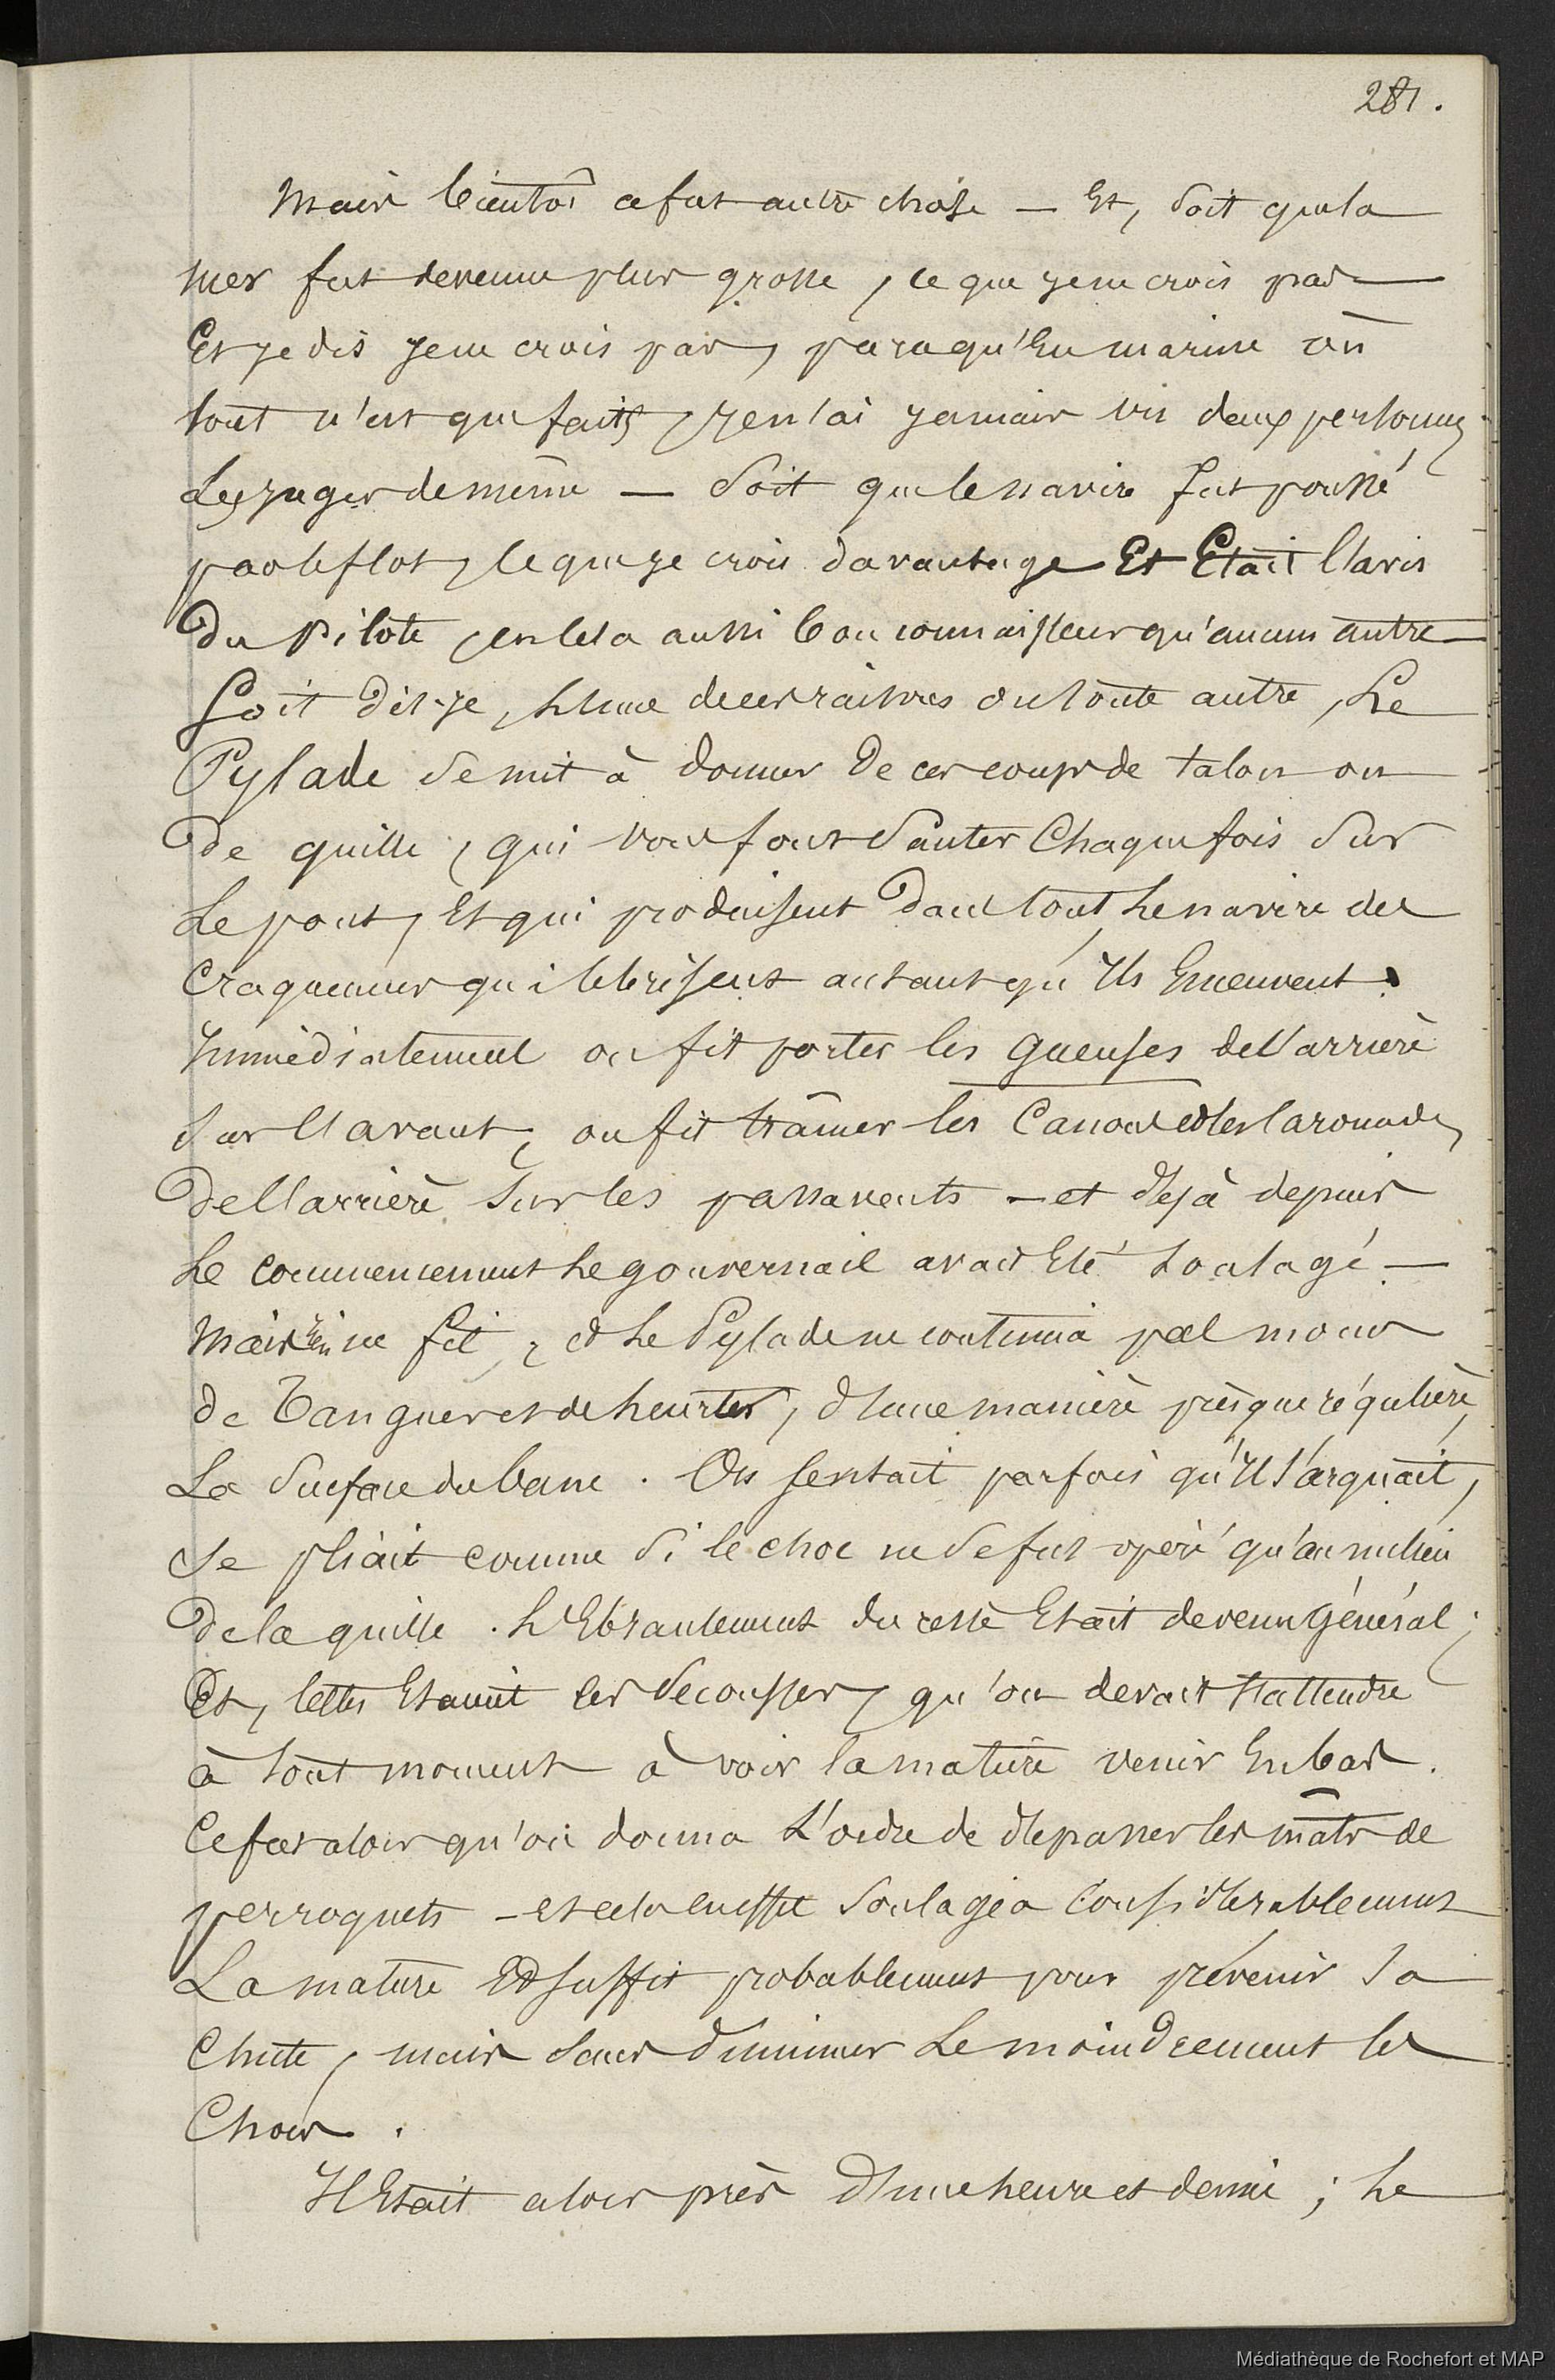 281.
Mais bientôt ce fut autre chose — Et, soit que la
mer fut devenue plus grosse, ce que je ne crois pas —
Et je dis je ne crois pas, parce qu'en marine où
tout n'est que faits, je n'ai jamais vu deux personnes
les juger de même — Soit que le navire fut poussé
par le flot, ce que je crois davantage Et Etait l'avis
du Pilote, en cela aussi bon connaisseur qu'aucun autre —
Soit dis-je, l'une de ces raisons ou toute autre, Le
Pylade se mit à donner de ces coups de talon ou
de quille, qui vous font sauter chaque fois sur
le pont, Et qui produisent dans tout le navire des
craquemens qui brisent autant qu'ils Emeuvent.
Immédiatement on fit porter les gueuses de l'arrière
sur l'avant, on fit traîner les Canons et les Caronades
de l'arrière sur les passavents — et déjà depuis
le commencement le gouvernail avait Eté soulagé —
Mais rien ne fit, et le Pylade ne continua pas moins
de Tanguer et de heurter, d'une manière presque régulière,
La surface du banc. On sentait parfois qu'il s'arquait,
se pliait comme si le choc ne se fut opéré qu'au milieu
de la quille. L'Ebranlement du reste Etait devenu Général;
Et, telles Etaient les secousses, qu'on devait s'attendre
à tout moment à voir la mature venir En bas.
Ce fut alors qu'on donna L'ordre de dépasser les mâts de
perroquets — et cela en effet soulagea considérablement
La mature Et suffit probablement pour prévenir sa
Chute, mais sans diminuer Le moindrement les
Chocs.
Il Etait alors près d'une heure et demie; Le
Médiathèque de Rochefort et MAP